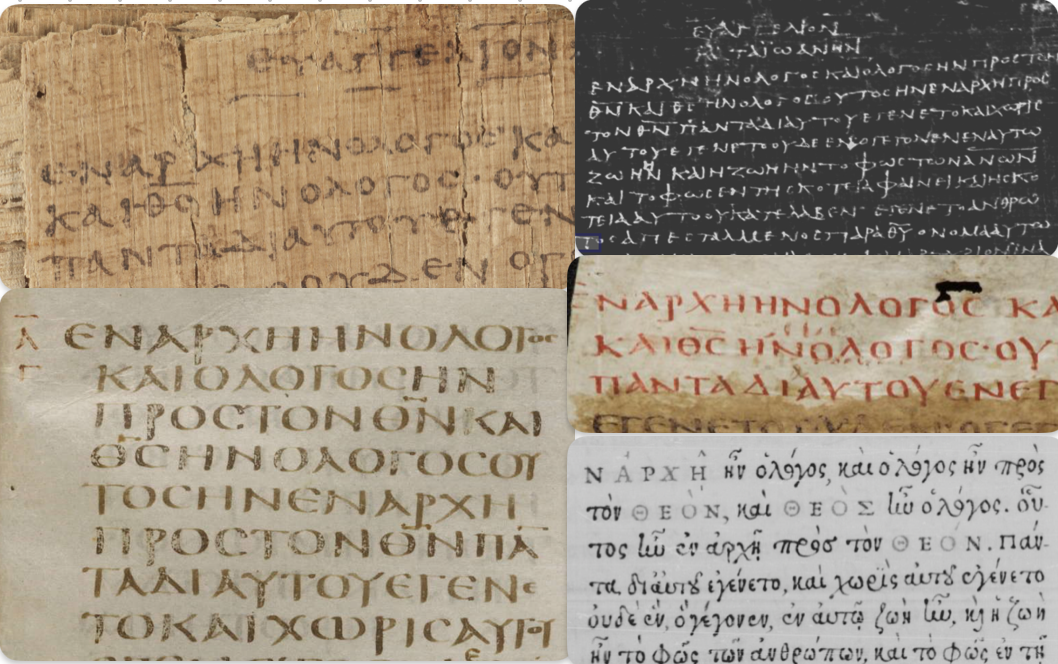 ΕΥΑΓΓΕΛΙΟΝ
ΕΝΑΡΧΗΗΝΟΛΟΓΟϹΚΑ
ΚΑΙΘ̅Ϲ̅ΗΝΟΛΟΓΟϹ·ΟΥΤ
ΠΑΝΤΑΔΙΑΥΤΟΥΕΓΕΝ
ΟΥΔΕΝΟΓ
ΕΥΑΓΓΕΛΙΟΝ
ΚΑΤΑΙΩΑΝΗΝ
ΕΝΑΡΧΗΗΝΟΛΟΓΟϹΚΑΙΟΛΟΓΟϹΗΝΠΡΟϹΤΟΝ
Θ̅Ν̅ΚΑΙΘ̅Ϲ̅ΗΝΟΛΟΓΟϹΟΥΤΟϹΗΝΕΝΑΡΧΗΠΡΟϹ
ΤΟΝΘ̅Ν̅ΠΑΝΤΑΔΙΑΥΤΟΥΕΓΕΝΕΤΟΚΑΙΧΩΡΙϹ
ΑΥΤΟΥΕΓΕΝΕΤΟΟΥΔΕΕΝΟΓΕΓΟΝΕΝΕΝΑΥΤΩ
ΖΩΗΗΝΚΑΙΗΖΩΗΗΝΤΟΦΩϹΤΩΝΑ̅Ν̅Ω̅Ν̅
ΚΑΙΤΟΦΩϹΕΝΤΗϹΚΟΤΕΙΑΦΑΙΝΕΙΚΑΙΗϹΚΟ
ΤΕΙΑΑΥΤΟΟΥΚΑΤΕΛΑΒΕΝ·ΕΓΕΝΕΤΟΑΝΘΡΩ
ΠΟϹΑΠΕϹΤΑΛΜΕΝΟϹΠΑΡΑΘ̅Υ̅ΟΝΟΜΑΑΥΤΩ
Α̅ ΕΝΑΡΧΗΗΝΟΛΟΓΟϹ
Γ ΚΑΙΟΛΟΓΟϹΗΝ
ΠΡΟϹΤΟΝΘ̅Ν̅ΚΑΙ
Θ̅Ϲ̅ΗΝΟΛΟΓΟϹΟΥ
ΤΟϹΗΝΕΝΑΡΧΗ
ΠΡΟϹΤΟΝΘ̅Ν̅ΠΑ̅
ΤΑΔΙΑΥΤΟΥΕΓΕΝΕ
ΤΟΚΑΙΧΩΡΙϹΑΥΤΟΥ
ΕΝΑΡΧΗΗΝΟΛΟΓΟϹΚΑ
ΚΑΙΘ̅Ϲ̅ΗΝΟΛΟΓΟϹ·ΟΥ
ΠΑΝΤΑΔΙΑΥΤΟΥΕΓΕΝΕΤ
ΕΓΕΝΕΤΟΟΥΔΕ
Ν ἈΡΧΗ͂ ἦν ὁ λόγος, καὶ ὁ λόγος ἦν πρὸς
τὸν ΘΕῸΝ, καὶ ΘΕῸΣ ἦν ὁ λόγος. οὗ-
τος ἦν ἐν ἀρχῇ πρὸς τὸν ΘΕΟΝ. Πάν-
τα δι᾽ αὐτοῦ ἐγένετο, καὶ χωρὶς αὐτοῦ ἐγένετο
οὐδὲ ἕν, ὃ γέγονεν, ἐν αὐτῷ ζωὴ ἦν, καὶ ἡ ζωὴ
ἦν τὸ φῶς τῶν ἀνθρώπων, καὶ τὸ φῶς ἐν τῇ